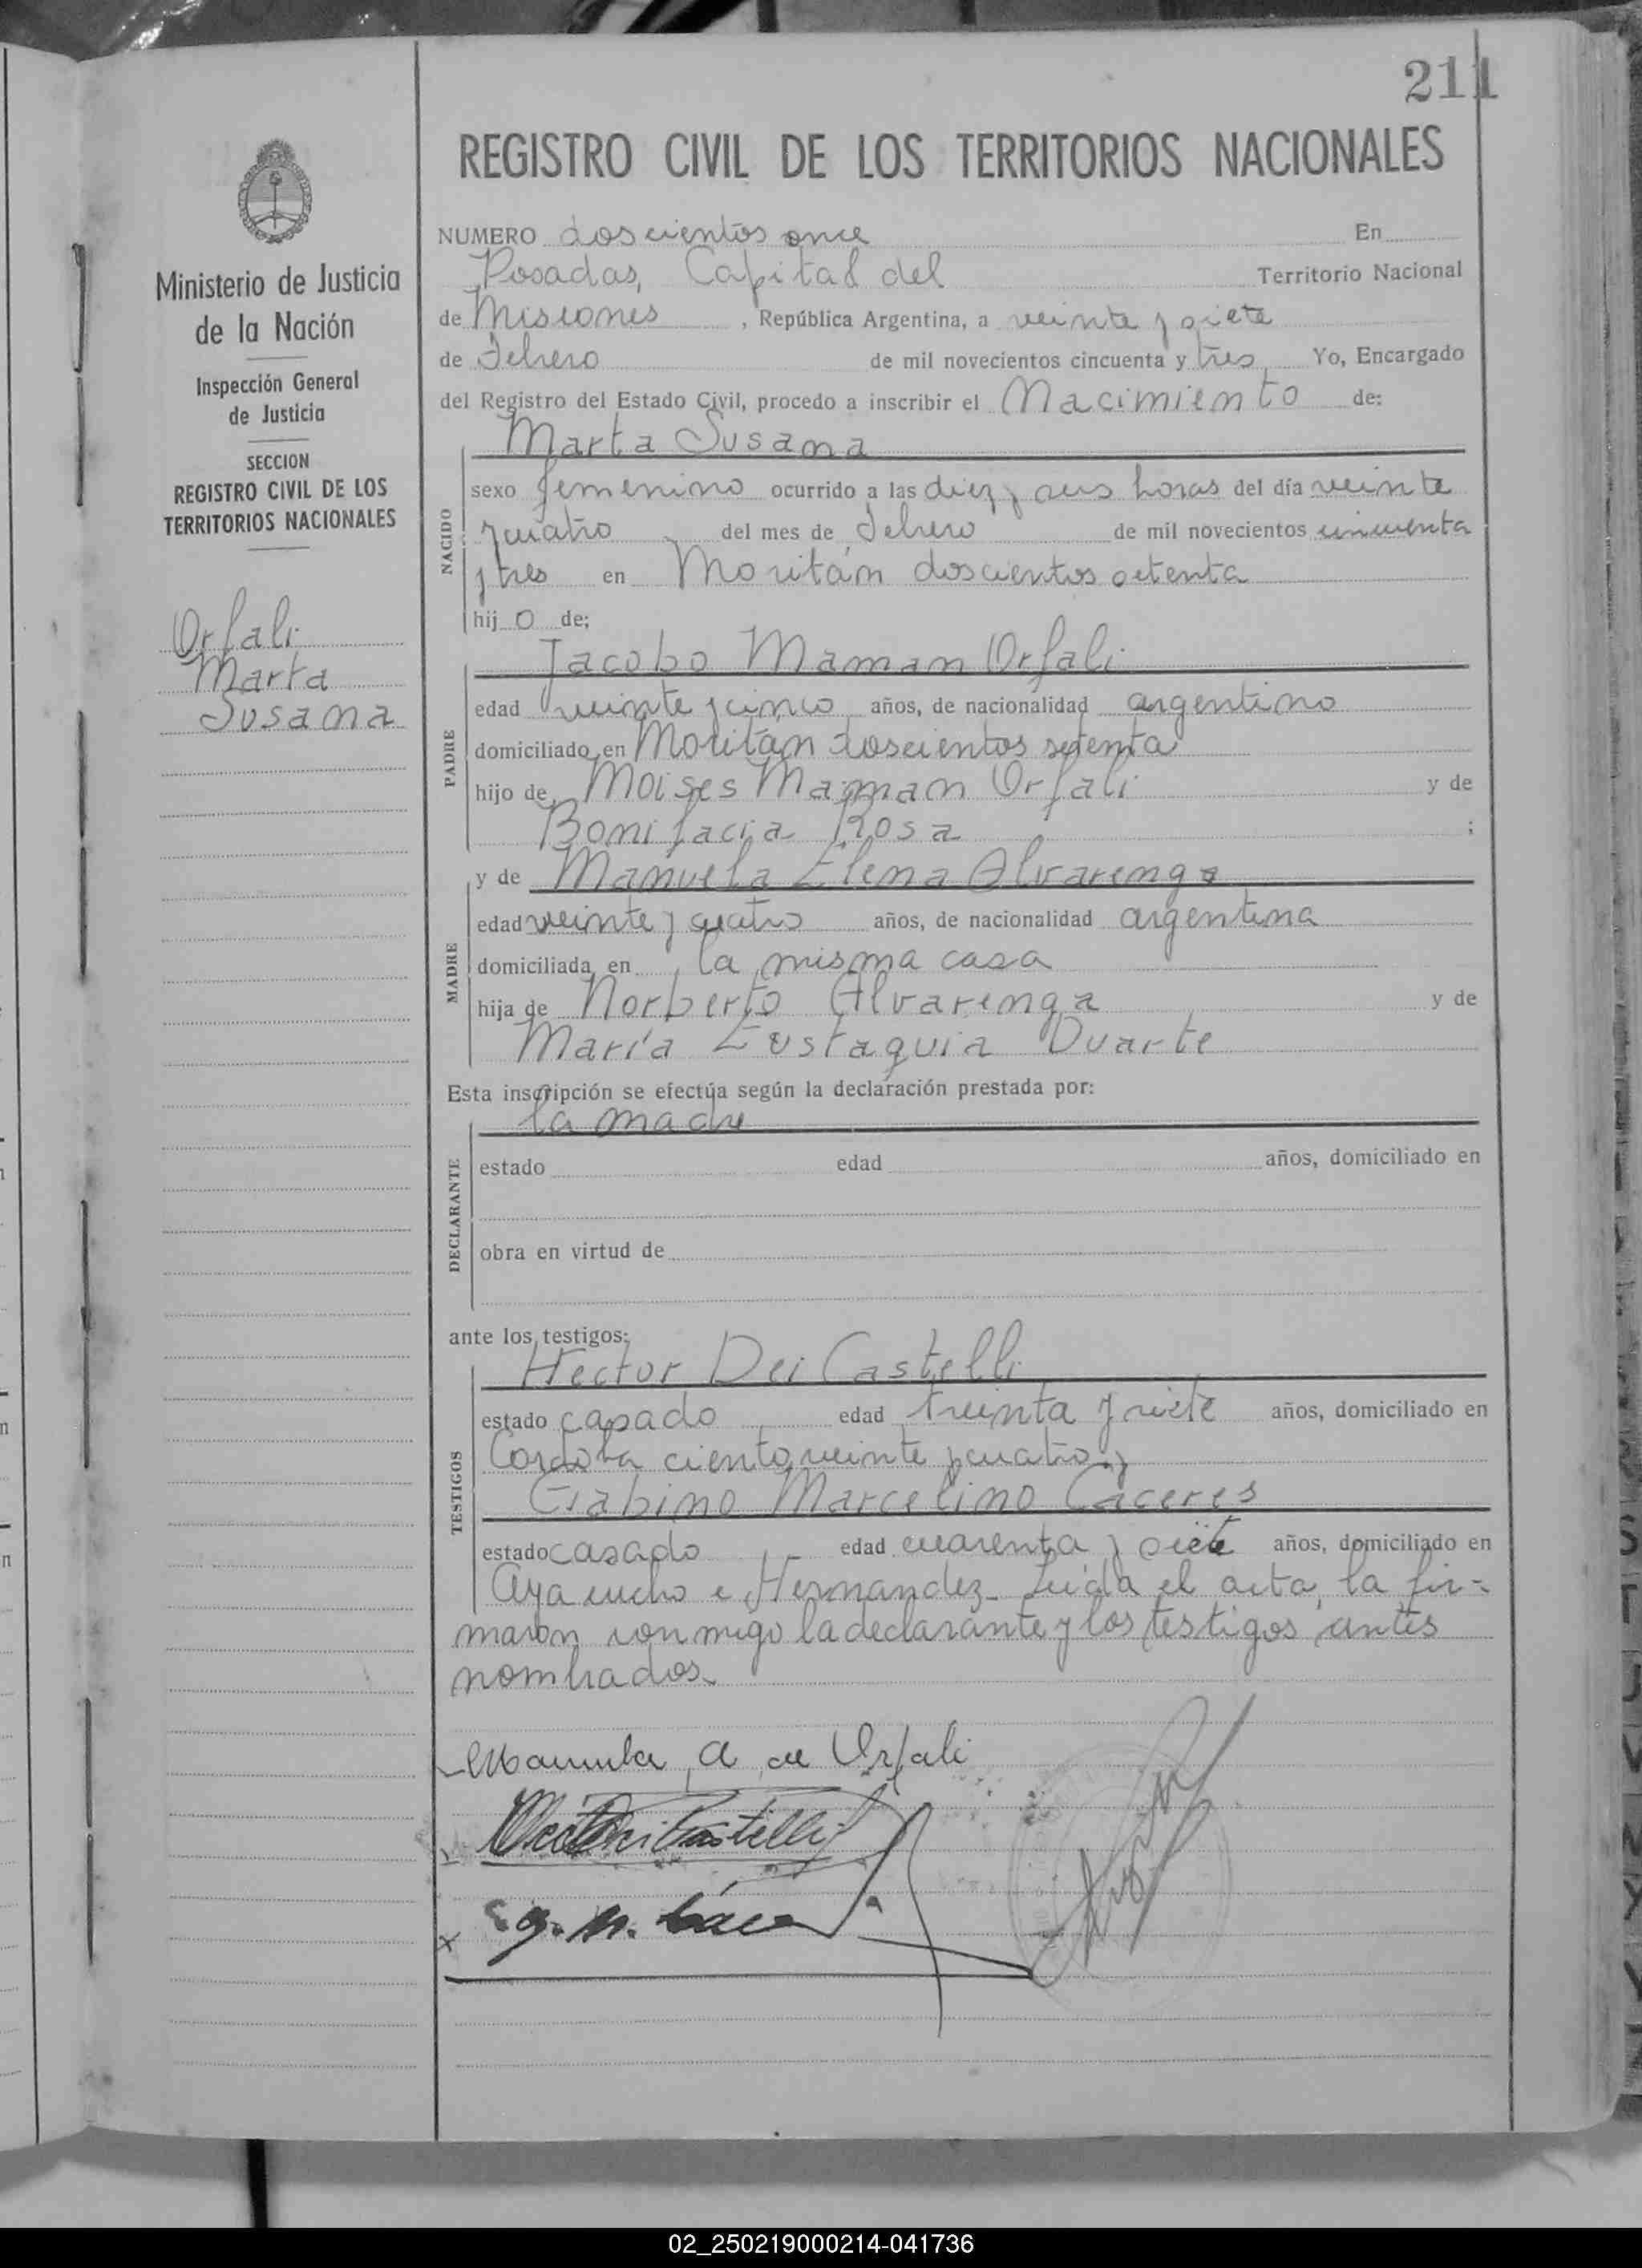 211
REGISTRO CIVIL DE LOS TERRITORIOS NACIONALES
Ministerio de Justicia
de la Nación
Inspección General
de Justicia
SECCION
REGISTRO CIVIL DE LOS
TERRITORIOS NACIONALES
Orfali
Marta
Susana
NUMERO doscientos once En
Posadas, Capital del Territorio Nacional
de Misiones, República Argentina, a veinte y siete
de Febrero de mil novecientos cincuenta y tres Yo, Encargado
del Registro del Estado Civil, procedo a inscribir el Nacimiento de:
Marta Susana
NACIDO
sexo femenino ocurrido a las diez y seis horas del día veinte
y cuatro del mes de Febrero de mil novecientos cincuenta
y tres en Moritán doscientos setenta
hij o de;
Jacobo Maman Orfali
PADRE
edad veinte y cinco años, de nacionalidad argentino
domiciliado en Moritán doscientos setenta
hijo de Moises Maman Orfali y de
Bonifacia Rosa ;
y de Manuela Elena Alvarenga
MADRE
edad veinte y cuatro años, de nacionalidad argentina
domiciliada en la misma casa
hija de Norberto Alvarenga y de
María Eustaquia Duarte
Esta inscripción se efectúa según la declaración prestada por:
la madre
DECLARANTE
estado edad años, domiciliado en
obra en virtud de
ante los testigos:
Hector Dei Castelli
TESTIGOS
estado casado edad treinta y siete años, domiciliado en
Cordoba ciento veinte y cuatro y
Gabino Marcelino Caceres
estado casado edad cuarenta y siete años, domiciliado en
Ayacucho e Hernandez. Leida el acta, la fir-
maron conmigo la declarante y los testigos antes
nombrados.
Manuela A de Orfali
Hector Dei Castelli
G. M. Cácer
02_250219000214-041736